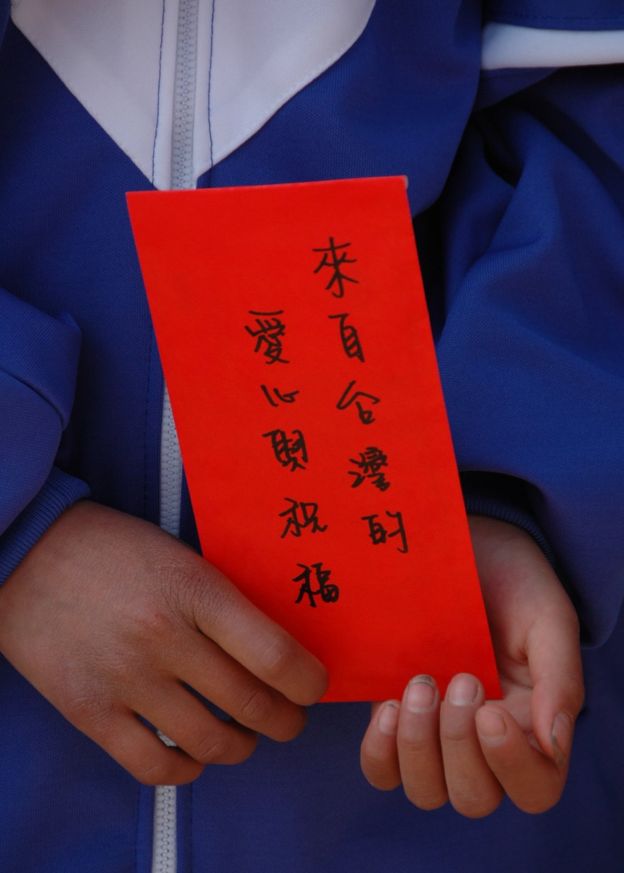 來自台灣的
愛心與祝福